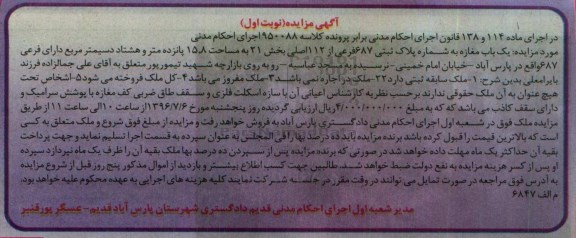 آگهی مزایده(نوبت اول)
در اجرای ماده ۱۱۴ و ۱۳۸ قانون اجرای احکام مدنی برابر پرونده کلاسه ۹۵۰۰۸۸اجرای احکام مدنی
مورد مزایده: یک باب مغازه به شماره پلاک ثبتی ۶۸۷فرعی از ۱۱۲اصلی بخش ۲۱ به مساحت ۱۵,۸ پانزده متر و هشتاد دسیمتر مربع دارای فرعی
۶۸۷واقع در پارس آباد -خیابان امام خمینی- نرسیده به رو به روی بازارچه شهید تیمورپور متعلق به آقای علی جمالزاده فرزند
بایرامعلی بدین شرح: ۱-ملک سابقه ثبتی دارد ۲-ملک در اجاره نمی باشد ۳-ملک مفروز می باشد ۴-کل ملک فروخته می شود ۵-اشخاص تحت
هیچ عنوان به آن ملک حقوقی ندارند برحسب نظریه کارشناس اعیانی آن با سازه اسکلت فلزی و سقف طاق ضربی کف مغازه با پوشش سرامیک و
دارای سقف کاذب می باشد که به مبلغ ۴/۰۰۰/۰۰۰/۰۰۰ریال ارزیابی گردیده روز پنجشنبه مورخ ۱۳۹۶/۷/۶ از ساعت ۱۰ الی ساعت ۱۱ از طریق
مزایده ملک فوق در شعبه اول اجرای احکام مدنی دادگستری پارس آباد به فروش خواهد رفت و مزایده از مبلغ فوق شروع و ملک متعلق به کسی
است که بالاترین قیمت را قبول کرده باشد برنده مزایده باید ده درصد بها را فی المجلس به عنوان سپرده به قسمت اجرا تسلیم نماید و جهت پرداخت
بقیه آن حداکثر یک ماه مهلت داده خواهد شد در صورتی که برنده مزایده پس از سپردن ده درصد بها ملک بقیه آن را ظرف یک ماه نپردازد سپرده
او پس از کسر هزینه مزایده به نفع دولت ضبط خواهد شد. طالبین جهت کسب اطلاع بیشتر و بازدید از اموال مذکور پنج روز قبل از شروع مزایده
به آدرس فوق مراجعه در صورت تمایل می توانند در وقت مقرر در جلسه شرکت نمایند کلیه هزینه های اجرایی به عهده محکوم علیه خواهد بود.
م الف ۶۸۴۷
مدیر شعبه اول اجرای احکام مدنی قدیم دادگستری شهرستان پارس آباد قدیم- عسگر پورقنبر